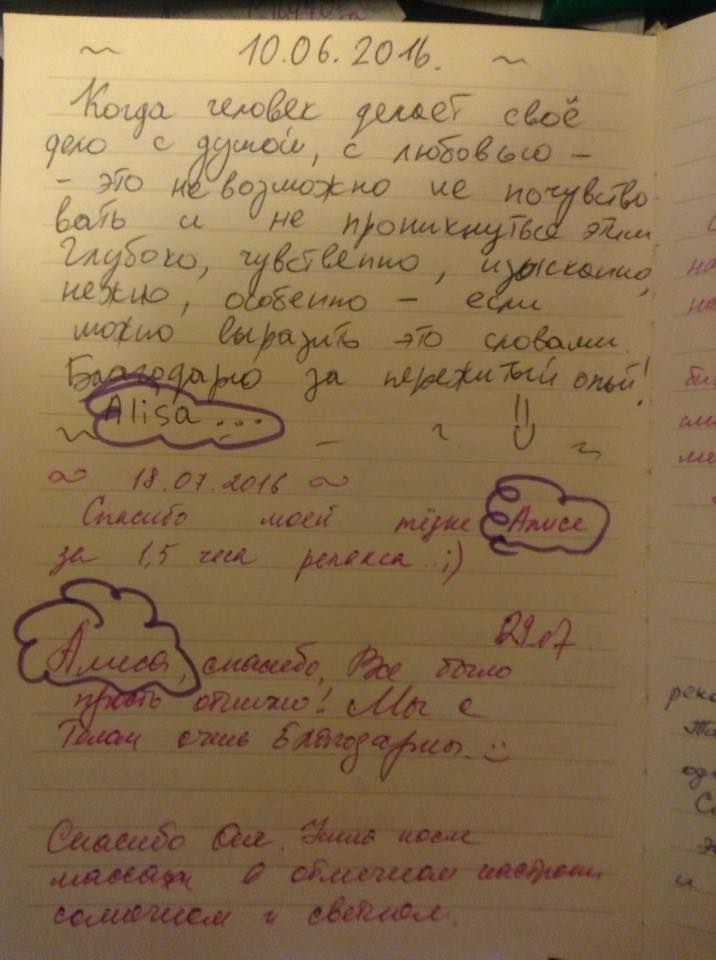 ~ 10.06.2016. ~
Когда человек делает своё
дело с душой, с любовью -
- это невозможно не почувство
вать и не проникнуться этим
Глубоко, чувственно, изысканно,
нежно, особенно - если
можно выразить это словами.
Благодарю за пережитый опыт!
Alisa ...
~ 18.07.2016 ~
Спасибо моей тёзке Алисе
за 1,5 часа релакса..;)
29.07
Алиса, спасибо, Все было
просто отлично! Мы с
Телом очень Благодарны.
Спасибо Оля. Ушла после
массажа в отличном настроении
солнечном и светлом.
на
на
ме
река
од
и